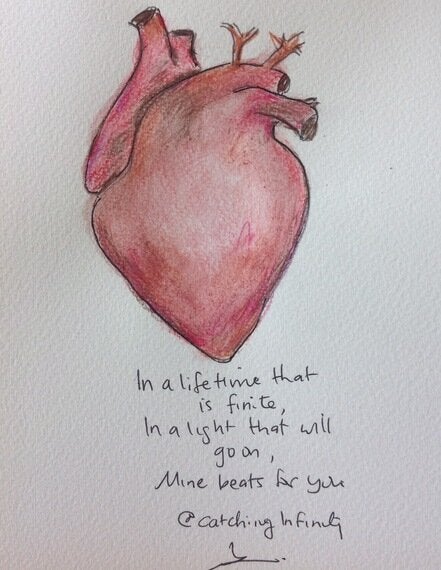 In a lifetime that
is finite,
In a light that will
go on,
Mine beats for you
@catching Infinity